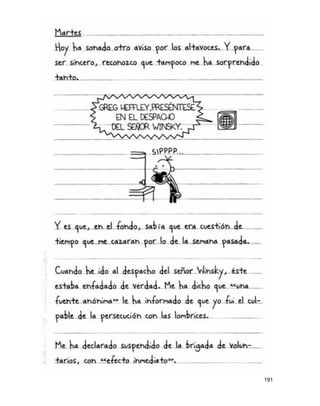 Martes
Hoy ha sonado otro aviso por los altavoces. Y para
ser sincero, reconozco que tampoco me ha sorprendido
tanto.
¡GREG HEFFLEY, PRESÉNTESE
EN EL DESPACHO
DEL SEÑOR WINSKY.
SIPPPP...
Y es que, en el fondo, sabía que era cuestión de
tiempo que me cazaran por lo de la semana pasada.
Cuando he ido al despacho del señor Winsky, éste
estaba enfadado de verdad. Me ha dicho que “una
fuente anónima” le ha informado de que yo fui el cul-
pable de la persecución con las lombrices.
Me ha declarado suspendido de la brigada de volun-
tarios, con “efecto inmediato”.
191